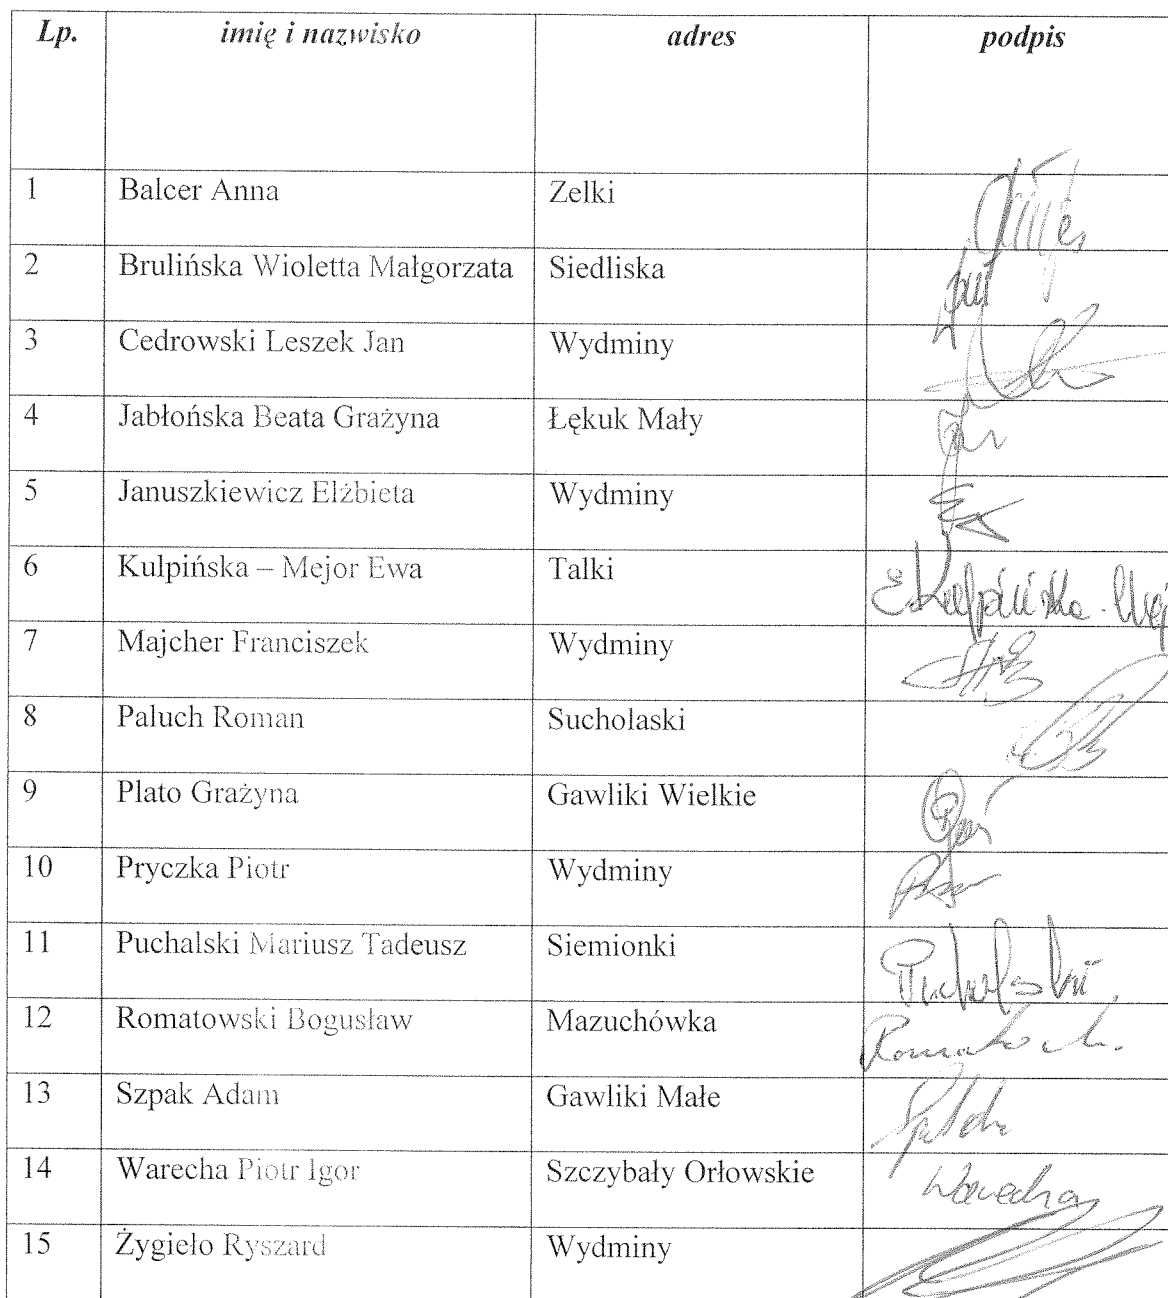 Lp. imię i nazwisko adres podpis
1 Balcer Anna Zelki
2 Brulińska Wioletta Małgorzata Siedliska
3 Cedrowski Leszek Jan Wydminy
4 Jabłońska Beata Grażyna Łękuk Mały
5 Januszkiewicz Elżbieta Wydminy
6 Kulpińska – Mejor Ewa Talki E.Kulpińska-Mej
7 Majcher Franciszek Wydminy
8 Paluch Roman Sucholaski
9 Plato Grażyna Gawliki Wielkie
10 Pryczka Piotr Wydminy
11 Puchalski Mariusz Tadeusz Siemionki Puchalski
12 Romatowski Bogusław Mazuchówka
13 Szpak Adam Gawliki Małe
14 Warecha Piotr Igor Szczybały Orłowskie Warecha
15 Żygieło Ryszard Wydminy